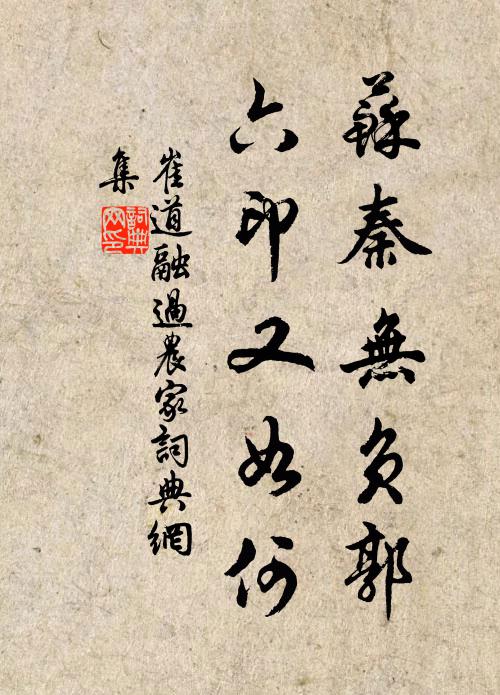 蘇秦無負郭
六印又如何
崔道融過農家詞典網
集
詞典网印